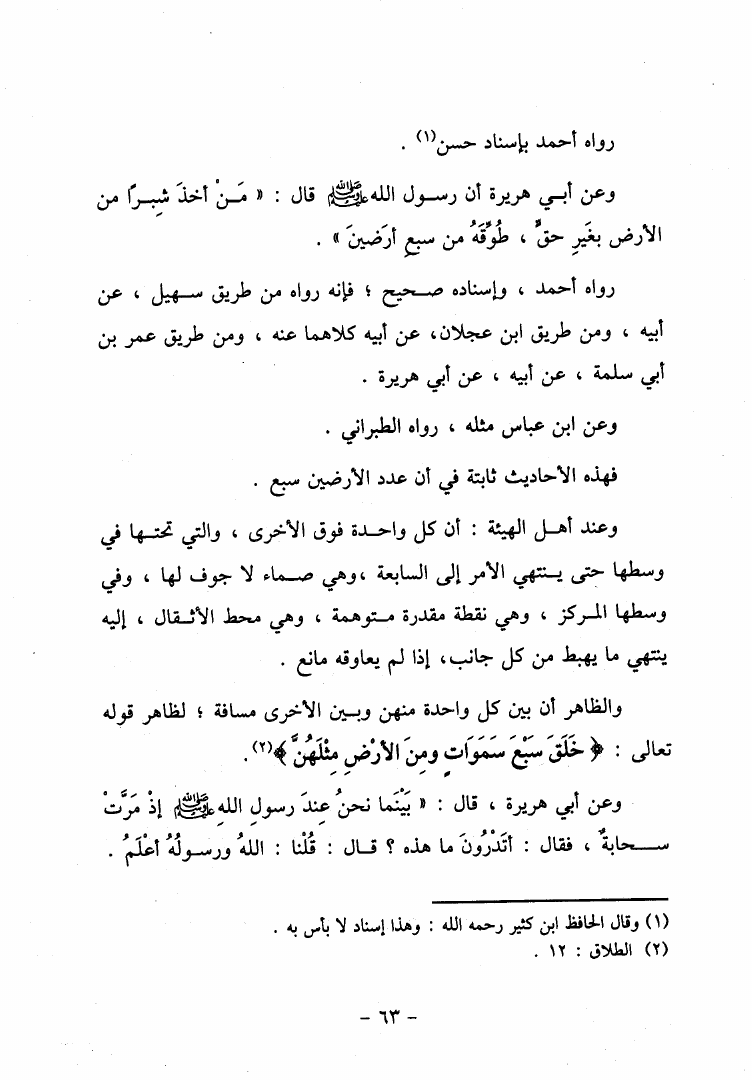 رواه أحمد بإسناد حسن(١) .
وعن أبي هريرة أن رسول الله ﷺ قال : « مَنْ أخذَ شبراً من
الأرض بغَيرِ حقٍّ ، طُوِّقَهُ من سبعِ أرَضينَ » .
رواه أحمد ، وإسناده صحيح ؛ فإنه رواه من طريق سهيل ، عن
أبيه ، ومن طريق ابن عجلان، عن أبيه كلاهما عنه ، ومن طريق عمر بن
أبي سلمة ، عن أبيه ، عن أبي هريرة .
وعن ابن عباس مثله ، رواه الطبراني .
فهذه الأحاديث ثابتة في أن عدد الأرضين سبع .
وعند أهل الهيئة : أن كل واحدة فوق الأخرى ، والتي تحتها في
وسطها حتى ينتهي الأمر إلى السابعة ،وهي صماء لا جوف لها ، وفي
وسطها المركز ، وهي نقطة مقدرة متوهمة ، وهي محط الأثقال ، إليه
ينتهي ما يهبط من كل جانب، إذا لم يعاوقه مانع .
والظاهر أن بين كل واحدة منهن وبين الأخرى مسافة ؛ لظاهر قوله
تعالى : ﴿ خَلَقَ سَبْعَ سَمَوَاتٍ ومِنَ الأرْضِ مِثْلَهُنَّ ﴾(٢).
وعن أبي هريرة ، قال : « بَيْنَما نحنُ عِندَ رسولِ اللهِ ﷺ إذْ مَرَّتْ
سحابةٌ ، فقال : أتَدْرُونَ ما هذه ؟ قال : قُلْنا : اللهُ ورسولُهُ أعْلَمُ .
(١) وقال الحافظ ابن كثير رحمه الله : وهذا إسناد لا بأس به .
(٢) الطلاق : ١٢ .
- ٦٣ -